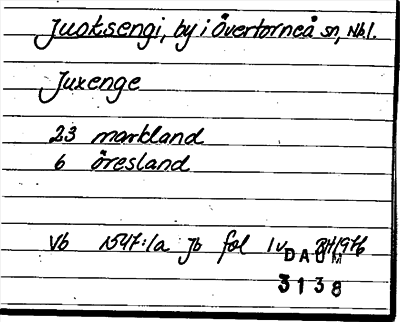 Juoksengi, by i Övertorneå sn, Nbl.
Juxenge
23 markland
6 öresland
Vb 1547:1a Jb fol 1v BH/1976
DAUM
3138